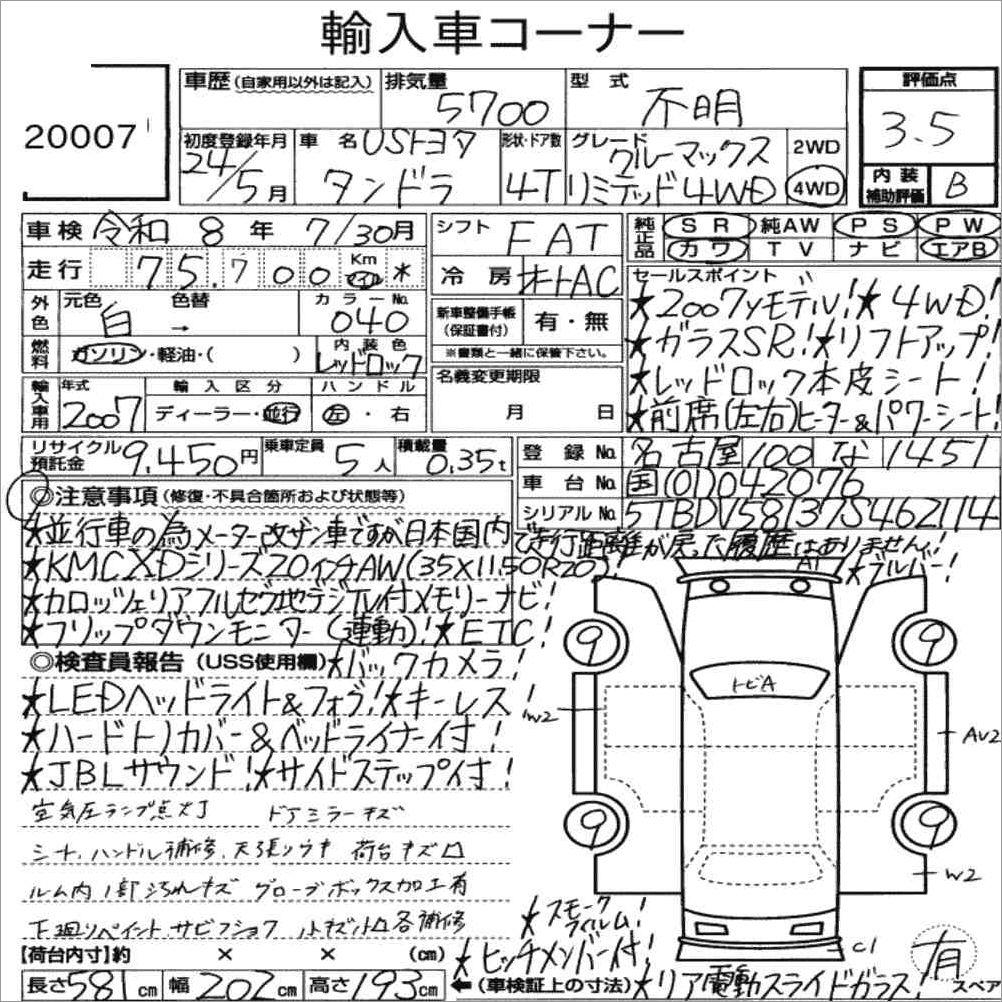 輸入車コーナー
20007
車歴(自家用以外は記入)
排気量
5700
型式
不明
評価点
3.5
初度登録年月
24/5月
車名
USトヨタ
タンドラ
形状・ドア数
4T
グレード
クルーマックス
リミテッド4WD
2WD
4WD
内装補助評価
B
車検 令和 8年 7/30月
シフト
FAT
純正品
SR 純AW PS PW
カワ TV ナビ エアB
走行
75,700
Km
マイル
冷房
オートAC
セールスポイント
★2007yモデル!★4WD!
★ガラスSR!★リフトアップ!
★レッドロック本皮シート!
★前席(左右)ヒーター&パワーシート!
外色
元色
白
色替
→
カラーNo.
040
新車整備手帳(保証書付)
有・無
※書類と一緒に保管下さい。
燃料
ガソリン・軽油・( )
内装色
レッドロック
名義変更期限
月 日
輸入車用
年式
2007
輸入区分
ディーラー・並行
ハンドル
左・右
リサイクル預託金
9,450円
乗車定員
5人
積載量
0.35t
登録No.
名古屋100な1451
車台No.
国(01)042076
シリアルNo.
5TBDV58137S462114
◎注意事項(修復・不具合箇所および状態等)
★並行車の為メーター改ザン車ですが日本国内で走行距離が戻った履歴はありません!
★KMC XDシリーズ20インチAW(35×11.50R20)!
★カロッツェリアフルセグ地デジTV付メモリーナビ!
★フリップダウンモニター(連動)!★ETC!
◎検査員報告(USS使用欄)
★バックカメラ!
★LEDヘッドライト&フォグ!★キーレス!
★ハードトノカバー&ベッドライナー付!
★JBLサウンド!★サイドステップ付!
空気圧ランプ点灯 ドアミラーキズ
シート、ハンドル補修、天張りウキ 荷台キズ凹
ルーム内1部汚れキズ グローブボックス加工有
下廻りペイント サビフショク
各補修
A1
★ブルバー!
9
9
トビA
W2
AV2
9
9
W2
C1
★スモークフィルム!
★ヒッチメンバー付!
★リア電動スライドガラス!
有
スペア
【荷台内寸】約 × × (cm)
長さ581cm 幅202cm 高さ193cm ←(車検証上の寸法)